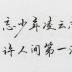 忘少年凌云
许人间第一